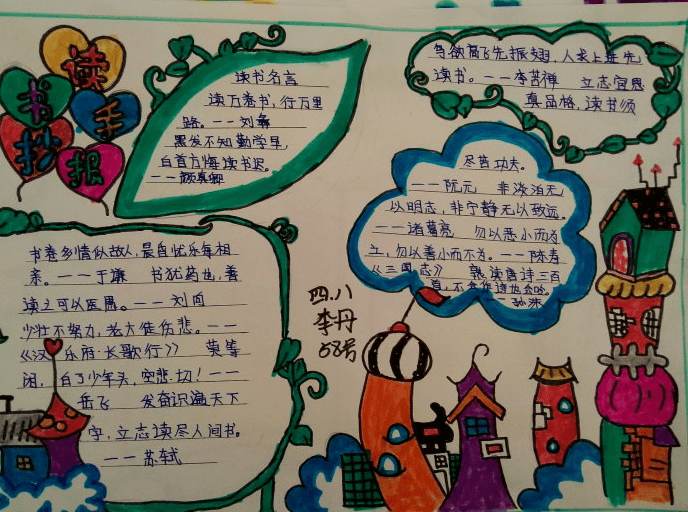 读书手抄报
读书名言
读万卷书，行万里
路。——刘彝
黑发不知勤学早，
白首方悔读书迟。
——颜真卿
鸟欲高飞先振翅，人求上进先
读书。——李苦禅 立志宜思
真品格，读书须
尽苦功夫。
——阮元 非淡泊无
以明志，非宁静无以致远。
——诸葛亮 勿以恶小而为
之，勿以善小而不为。——陈寿
《三国志》 熟读唐诗三百
首，不会作诗也会吟。
——孙洙
书卷乡情似故人，晨自忧乐每相
亲。——于谦 书犹药也，善
读之可以医愚。——刘向
少壮不努力，老大徒伤悲。——
《汉 乐府·长歌行》 莫等
闲，白了少年头，空悲切！——
岳飞 发奋识遍天下
字，立志读尽人间书。
——苏轼
四.八
李丹
58号